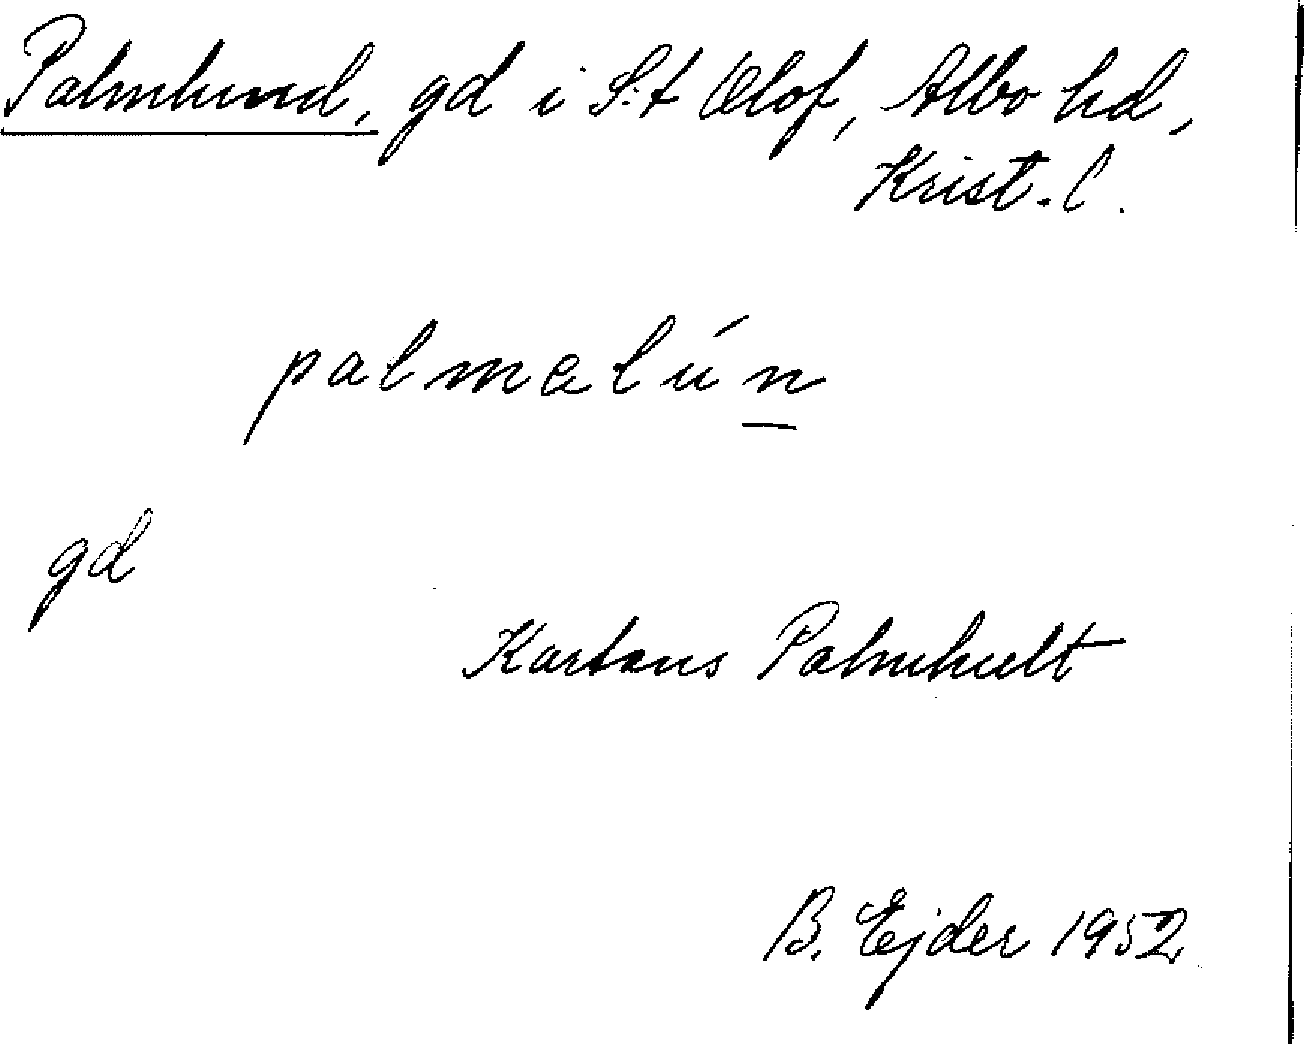 Palmlund, gd i S:t Olof, Albo hd,
Krist. l.
palmalún
gd
Kartans Palmhult
B. Ejder 1952